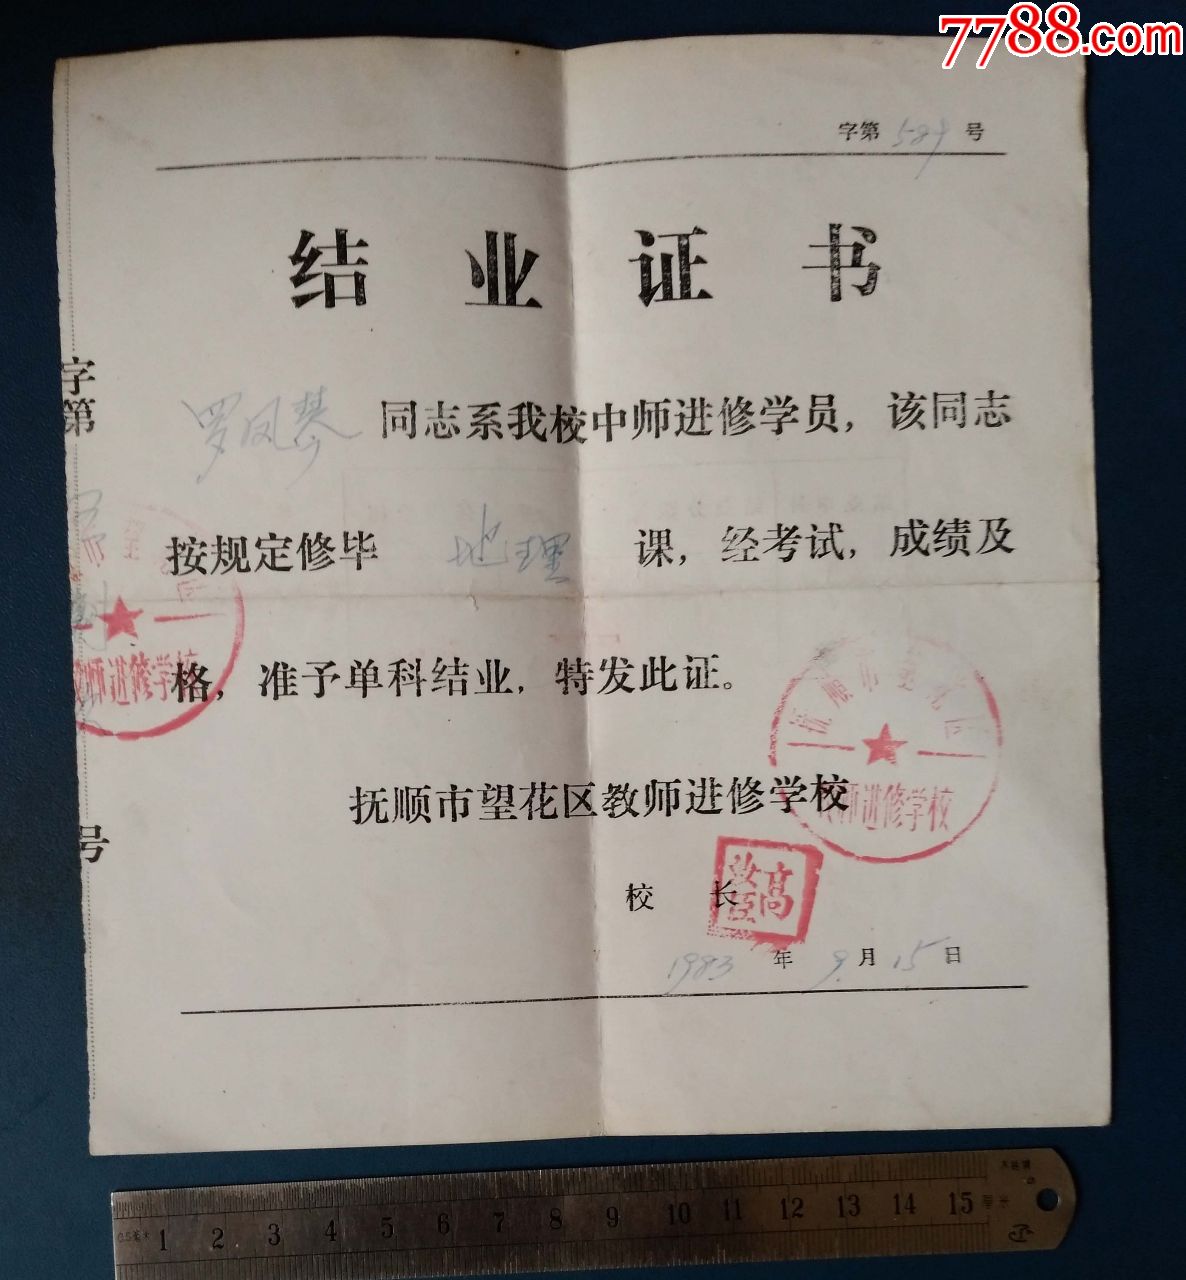 7788.com
字第 589 号
结业证书
罗凤琴 同志系我校中师进修学员，该同志
按规定修毕 地理 课，经考试，成绩及
格，准予单科结业，特发此证。
抚顺市望花区教师进修学校
校长
1983年9月15日
字第
号
师进修学校
抚顺市望花区
师进修学校
高
0.5毫米 1 2 3 4 5 6 7 8 9 10 11 12 13 14 15 厘米